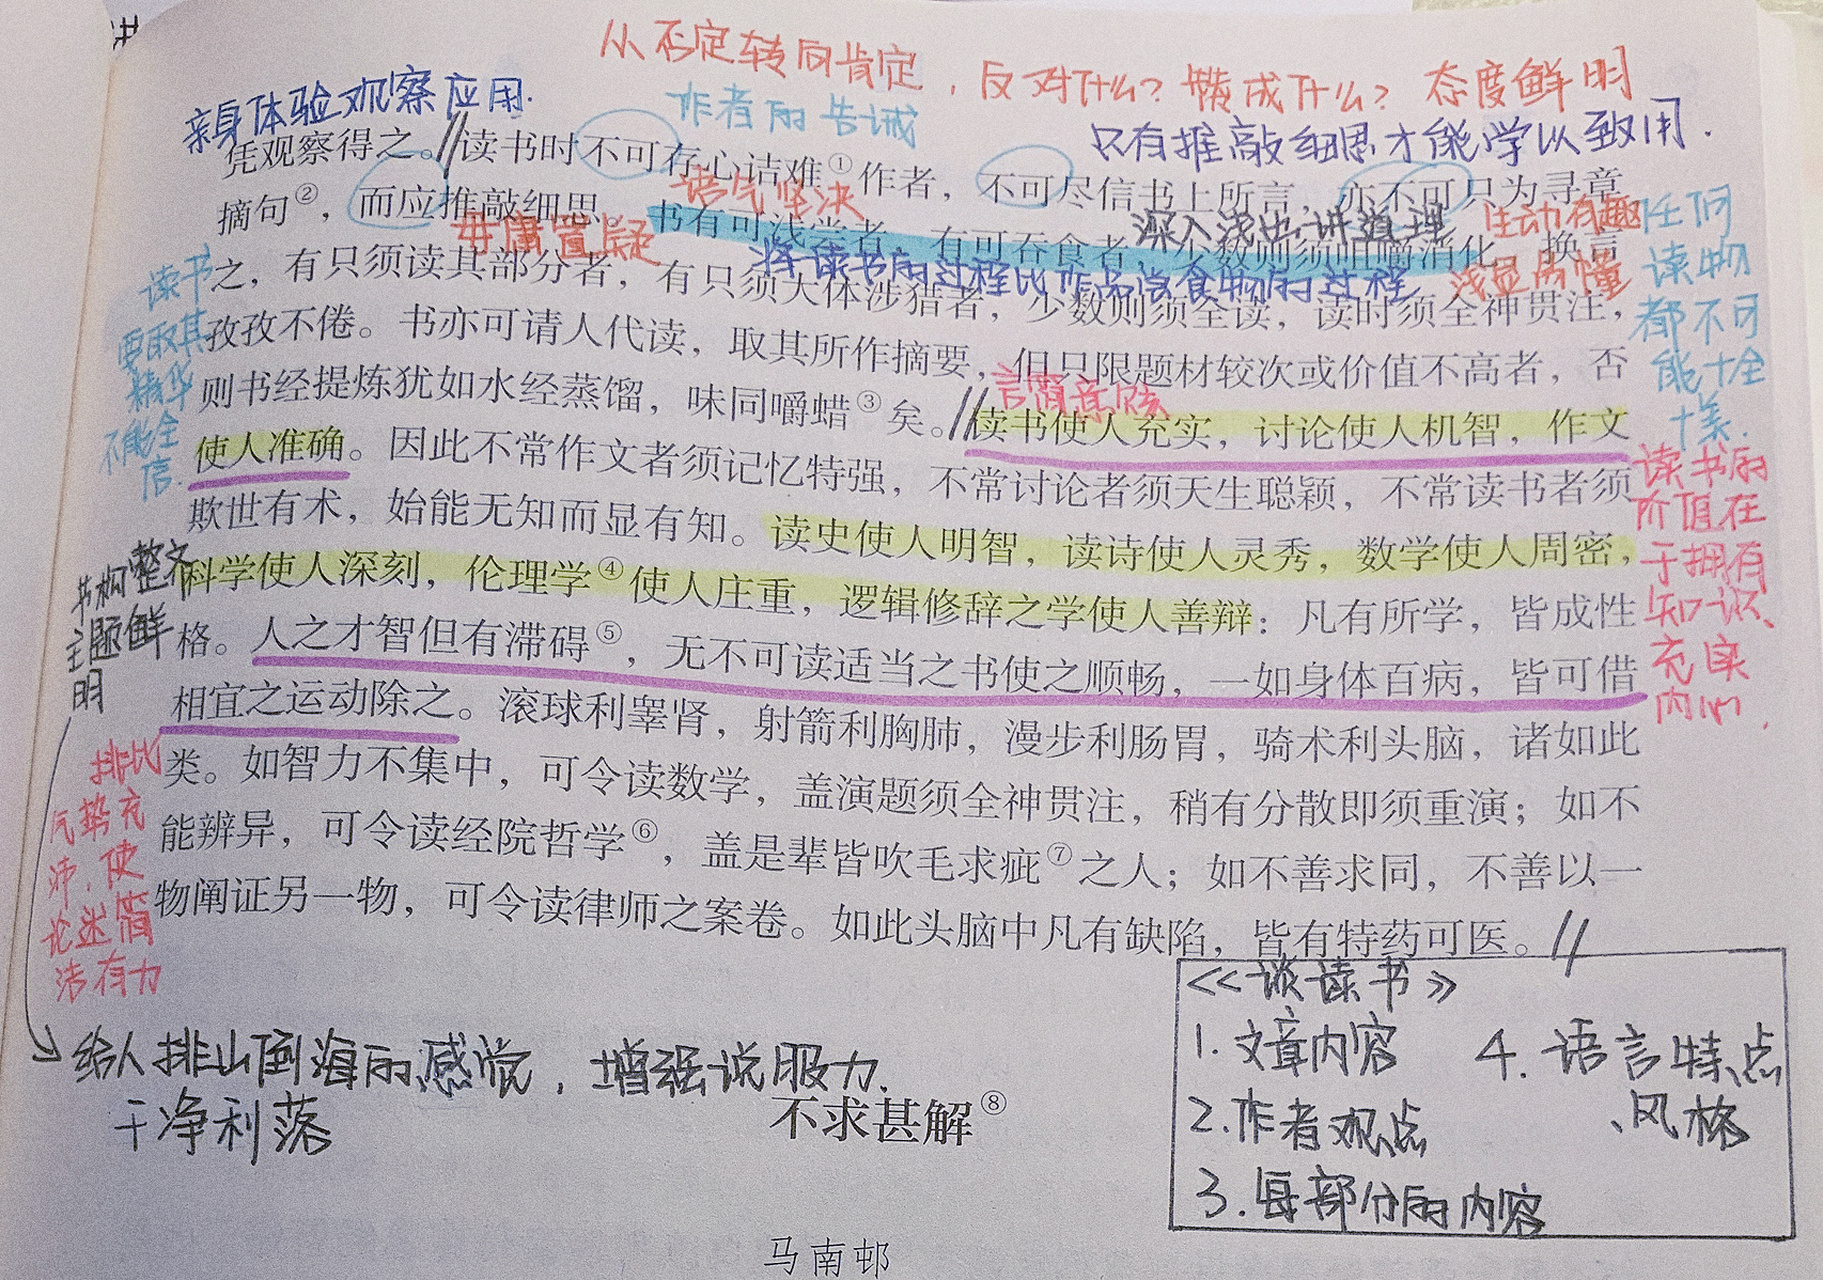 从否定转向肯定，反对什么？赞成什么？态度鲜明
亲身体验观察应用.
作者的告诫
只有推敲细思才能学以致用.
凭观察得之。//读书时不可存心诘难①作者，不可尽信书上所言，亦不可只为寻章
语气坚决
摘句②，而应推敲细思。书有可浅尝者，有可吞食者，少数则须咀嚼消化。换言
毋庸置疑
深入浅出讲道理
生动有趣
将读书的过程比作品尝食物的过程
浅显易懂
之，有只须读其部分者，有只须大体涉猎者，少数则须全读，读时须全神贯注，
孜孜不倦。书亦可请人代读，取其所作摘要，但只限题材较次或价值不高者，否
则书经提炼犹如水经蒸馏，味同嚼蜡③矣。//读书使人充实，讨论使人机智，作文
言简意赅
使人准确。因此不常作文者须记忆特强，不常讨论者须天生聪颖，不常读书者须
欺世有术，始能无知而显有知。读史使人明智，读诗使人灵秀，数学使人周密，
科学使人深刻，伦理学④使人庄重，逻辑修辞之学使人善辩：凡有所学，皆成性
格。人之才智但有滞碍⑤，无不可读适当之书使之顺畅，一如身体百病，皆可借
相宜之运动除之。滚球利睾肾，射箭利胸肺，漫步利肠胃，骑术利头脑，诸如此
类。如智力不集中，可令读数学，盖演题须全神贯注，稍有分散即须重演；如不
能辨异，可令读经院哲学⑥，盖是辈皆吹毛求疵⑦之人；如不善求同，不善以一
物阐证另一物，可令读律师之案卷。如此头脑中凡有缺陷，皆有特药可医。//
读书
要取其
精华
不能全
信.
任何
读物
都不可
能十全
十美.
读书的
价值在
于拥有
知识、
充实
内心.
书构整齐
主题鲜
明
排比
气势充
沛，使
论述简
洁有力
给人排山倒海的感觉，增强说服力.
干净利落
《谈读书》
1.文章内容
2.作者观点
3.每部分的内容
4.语言特点
、风格
不求甚解⑧
马南邨